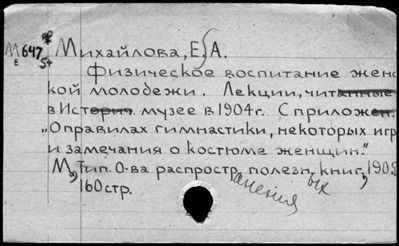 М 647 Михайлова, Е. А.
Е 5+
Физическое воспитание женс
кой молодежи. Лекции, читанные
в Историч. музее в 1904 г. С прилож.
„О правилах гимнастики, некоторых игр
и замечания о костюме женщин."
М., Тип. О-ва распространения полезных книг, 1905
160 стр.